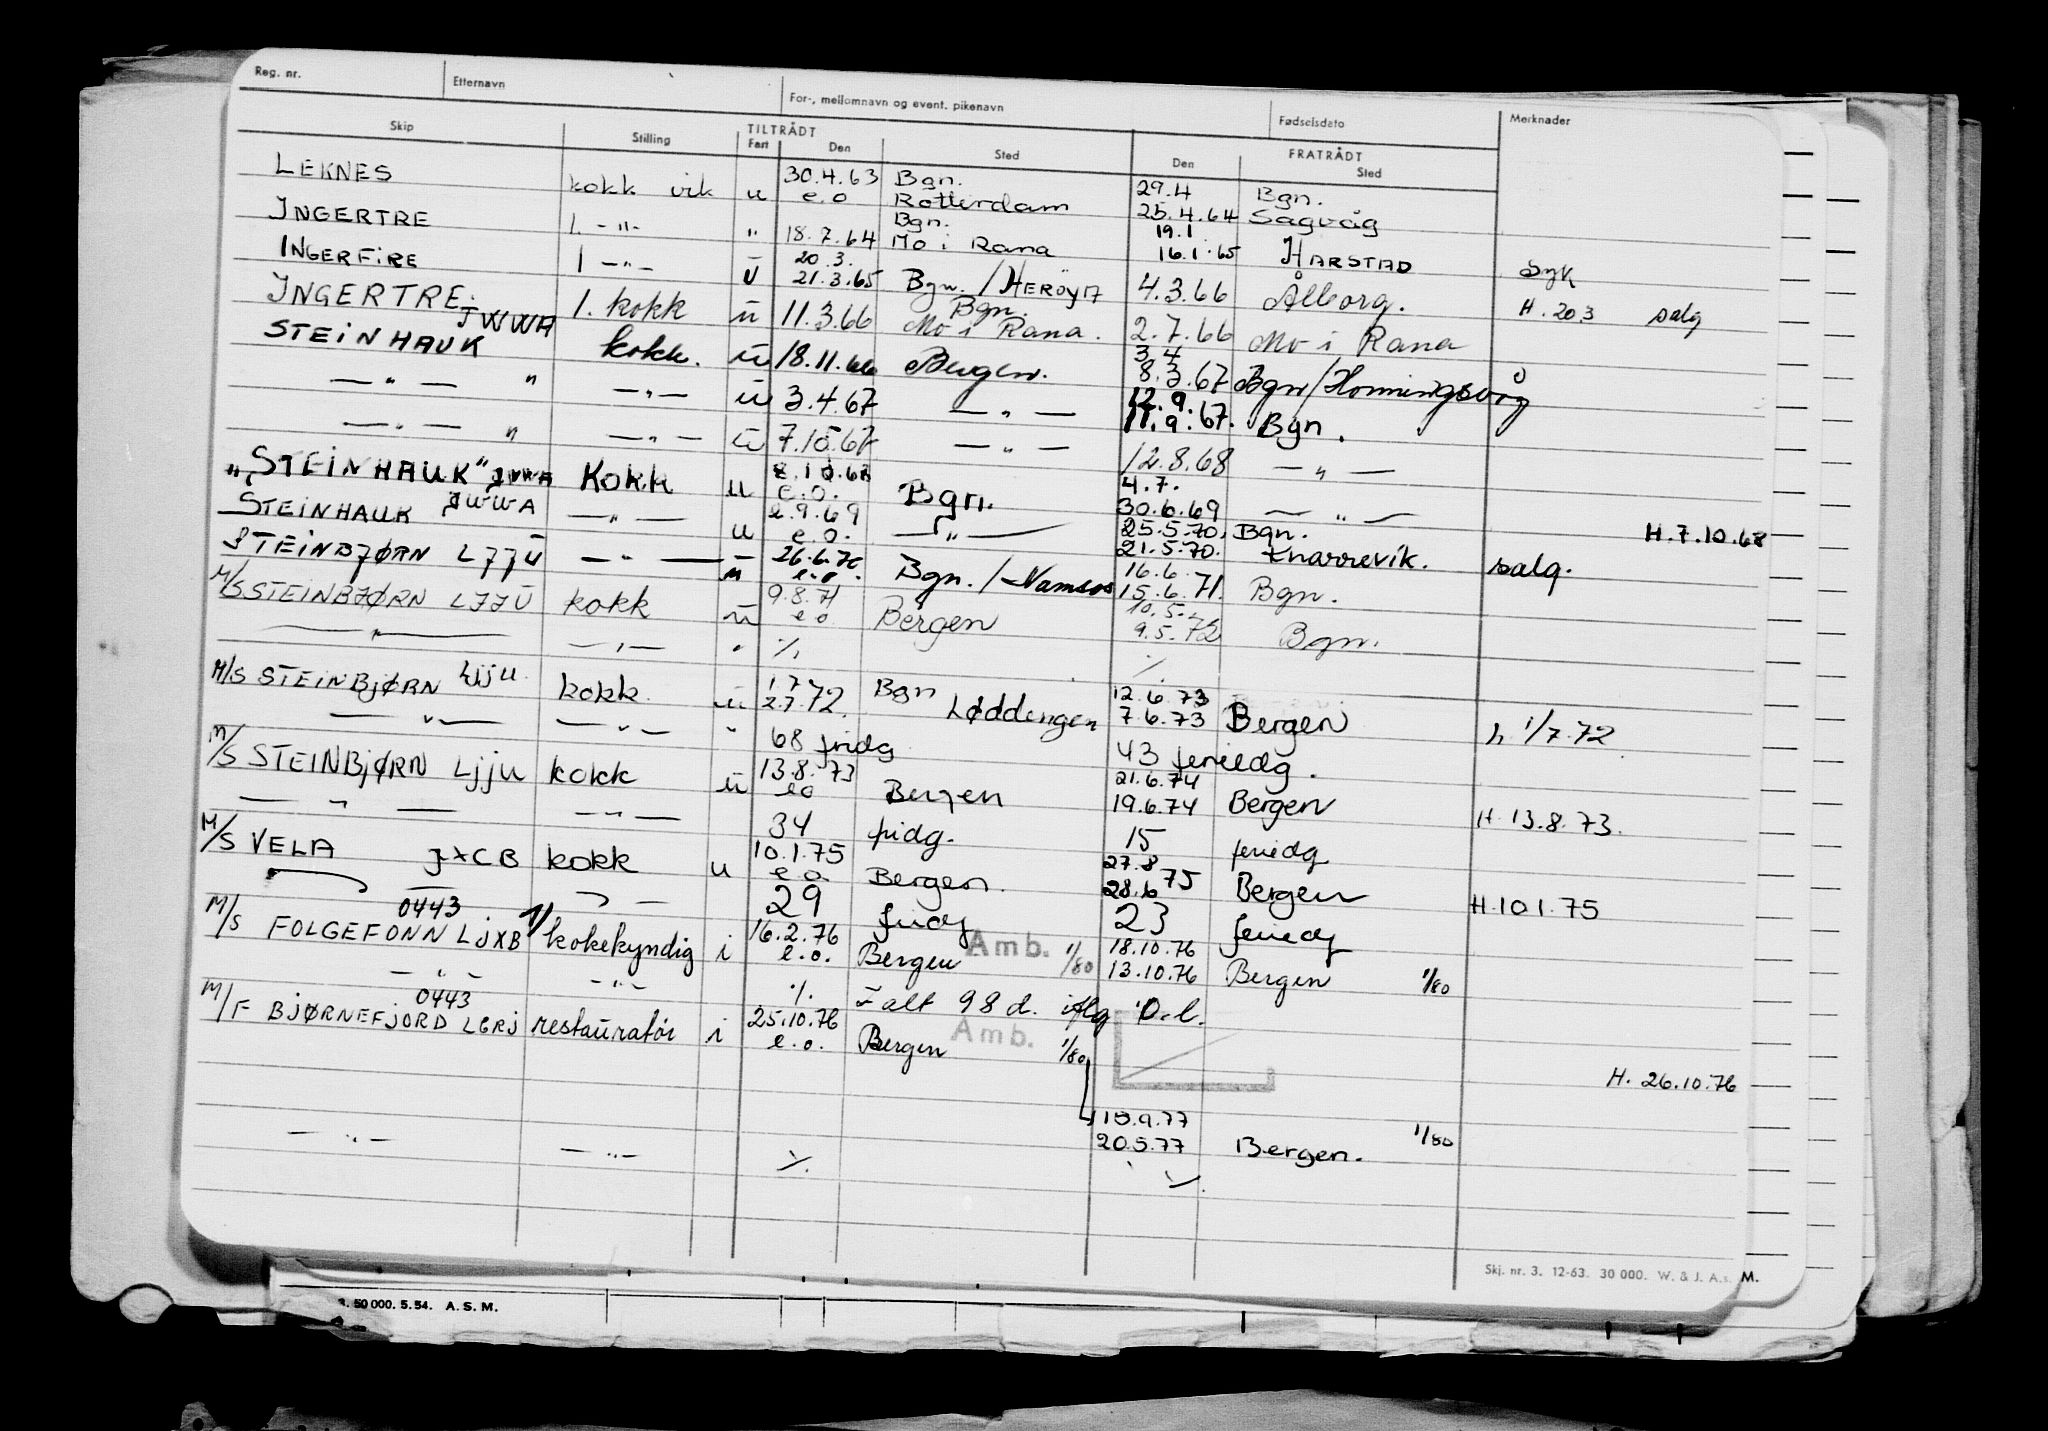 Reg. nr. Etternavn For-, mellomnavn og event. pikenavn Fødselsdato Merknader
Skip Stilling TILTRÅDT Fart Den Sted FRATRÅDT Den Sted
LEKNES kokk vik u 30.4.63 e.o Bgn. Rotterdam 29.4 25.4.64 Bgn. Sagvåg
INGERTRE 1. -"- " 18.7.64 Bgn. Mo i Rana 19.1 16.1.65 HARSTAD syk
INGERFIRE 1 -"- U 20.3. 21.3.65 Bgn. / HERØYA 4.3.66 Ålborg. H. 20.3 salg
INGERTRE JWWA 1. kokk u 11.3.66 Bgn. Mo i Rana. 2.7.66 Mo i Rana
STEINHAUK kokk. u 18.11.66 Bergen. 3.4 8.3.67 Bgn/Honningsvåg
— " — " — " — u 3.4.67 — " — 12.9. 11.9.67. Bgn.
— " — " — " — u 7.10.67 — " — 12.8.68 — " —
"STEINHAUK" JWWA Kokk u e.o. Bgn. 4.7. 30.6.69 — " — H. 7.10.68
STEINHAUK JWWA — " — u 2.9.69 e.o. — " — 25.5.70, 21.5.70. Bgn. Knarrevik. salg.
STEINBJØRN LJJU — " — u 26.6.70 e.o. Bgn. / Namsos 16.6. 15.6.71. Bgn.
M/S STEINBJØRN LJJU kokk u 9.8.71 e.o Bergen 10.5. 9.5.72 Bgn.
— " — — " — " %. %.
M/S STEINBJØRN Ljju kokk. u 1.7 2.7.72. Bgn Løddingen 12.6.73 7.6.73 Bergen h 1/7.72
— " — — " — " 68 fridg 43 feriedg.
M/S STEINBJØRN Ljju kokk u 13.8.73 e.o Bergen 21.6.74 19.6.74 Bergen H. 13.8.73.
— " — — " — 34 fridg. 15 feriedg
M/S VELA JXCB kokk u 10.1.75 e.o Bergen. 27.8 28.6 75 Bergen H. 10.1.75
29 fridg 23 feriedg
M/S FOLGEFONN 0443 LJXB 1/ kokekyndig i 16.2.76 e.o. Bergen Amb. 1/80 18.10.76 13.10.76 Bergen 1/80
— " — — " — %. I alt 98 d. iflg D.l.
M/F BJØRNEFJORD 0443 LGRJ restauratør i 25.10.76 e.o. Bergen Amb. 1/80 H. 26.10.76
15.9.77 20.5.77 Bergen. 1/80
— " — — " — %. %.
Skj. nr. 3. 12-63. 30 000. W. & J. A.s. M.
50 000. 5.54. A. S. M.